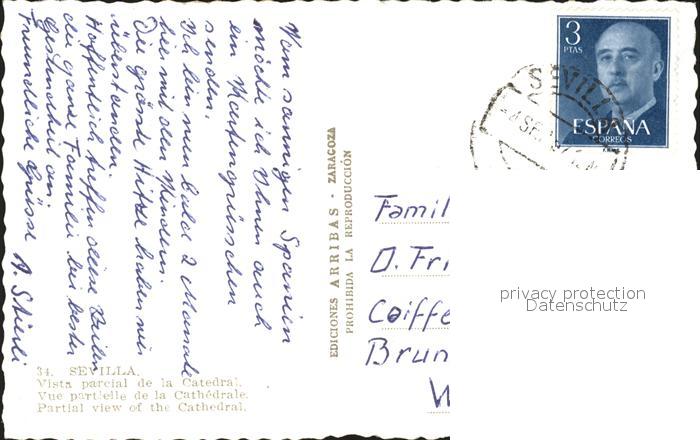 Vom sonnigen Spanien
möchte ich Ihnen auch
ein Kartengrüsschen
senden.
Ich bin nun bald 2 Monate
hier mit den Kindern.
Die grösste Hitze haben wir
überstanden.
Hoffentlich treffen diese Zeilen
die ganze Familie bei bester
Gesundheit an.
Freundliche Grüsse
34. SEVILLA.
Vista parcial de la Catedral.
Vue partielle de la Cathédrale.
Partial view of the Cathedral.
EDICIONES ARRIBAS - ZARAGOZA
PROHIBIDA LA REPRODUCCIÓN
3
PTAS
ESPAÑA
CORREOS
SEVILLA
Famil
D. Fri
Coiffe
Brun
W
privacy protection
Datenschutz